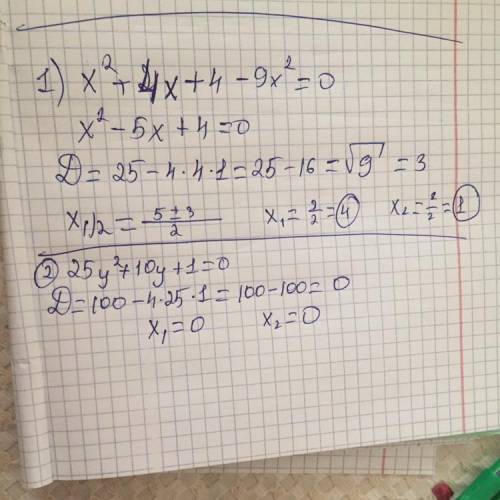 1) x² + 4x + 4 - 9x² = 0
x² - 5x + 4 = 0
D = 25 - 4 · 4 · 1 = 25 - 16 = √9 = 3
x₁/₂ = (5 ± 3)/2 x₁ = 2/2 = 4 x₂ = 2/2 = 1
2 25y² + 10y + 1 = 0
D = 100 - 4 · 25 · 1 = 100 - 100 = 0
x₁ = 0 x₂ = 0